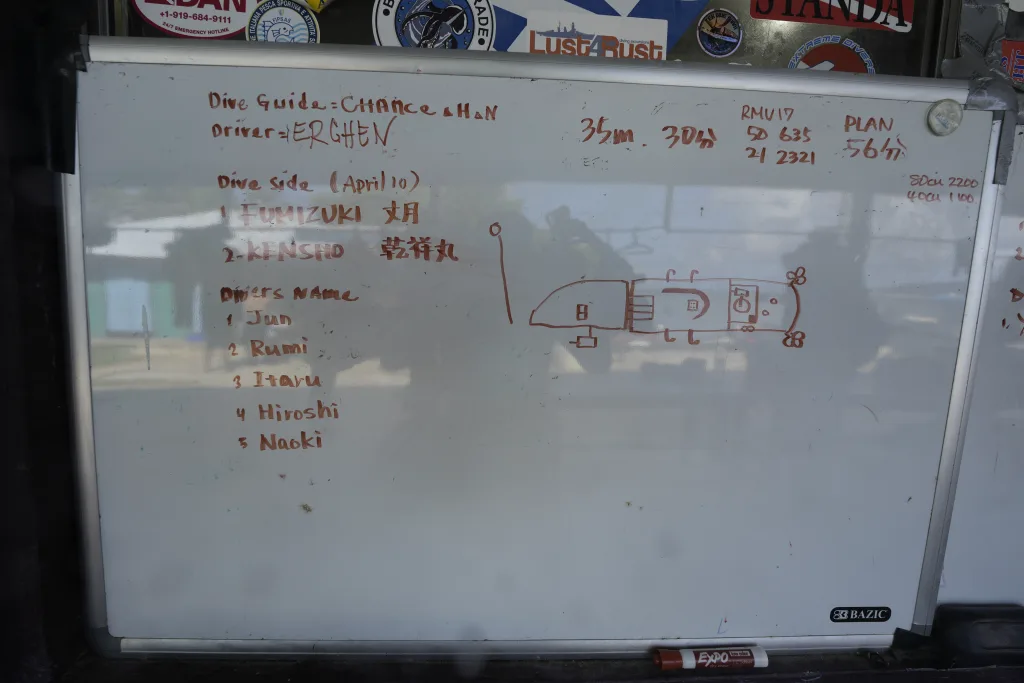 DAN
+1-919-684-9111
24/7 EMERGENCY HOTLINE
LUST4RUST
STANDA
EXTREME DIVERS
Dive Guide = CHANCE & H&N
Driver = ERGHEN
35m. 30分
RMV17
50 635
21 2321
PLAN
56分
80cu 2200
40cu 1100
Dive side (April 10)
1. FUMIZUKI 文月
2. KENSHO 乾祥丸
Divers NAme
1 Jun
2 Rumi
3 Itaru
4 Hiroshi
5 Naoki
BAZIC
EXPO